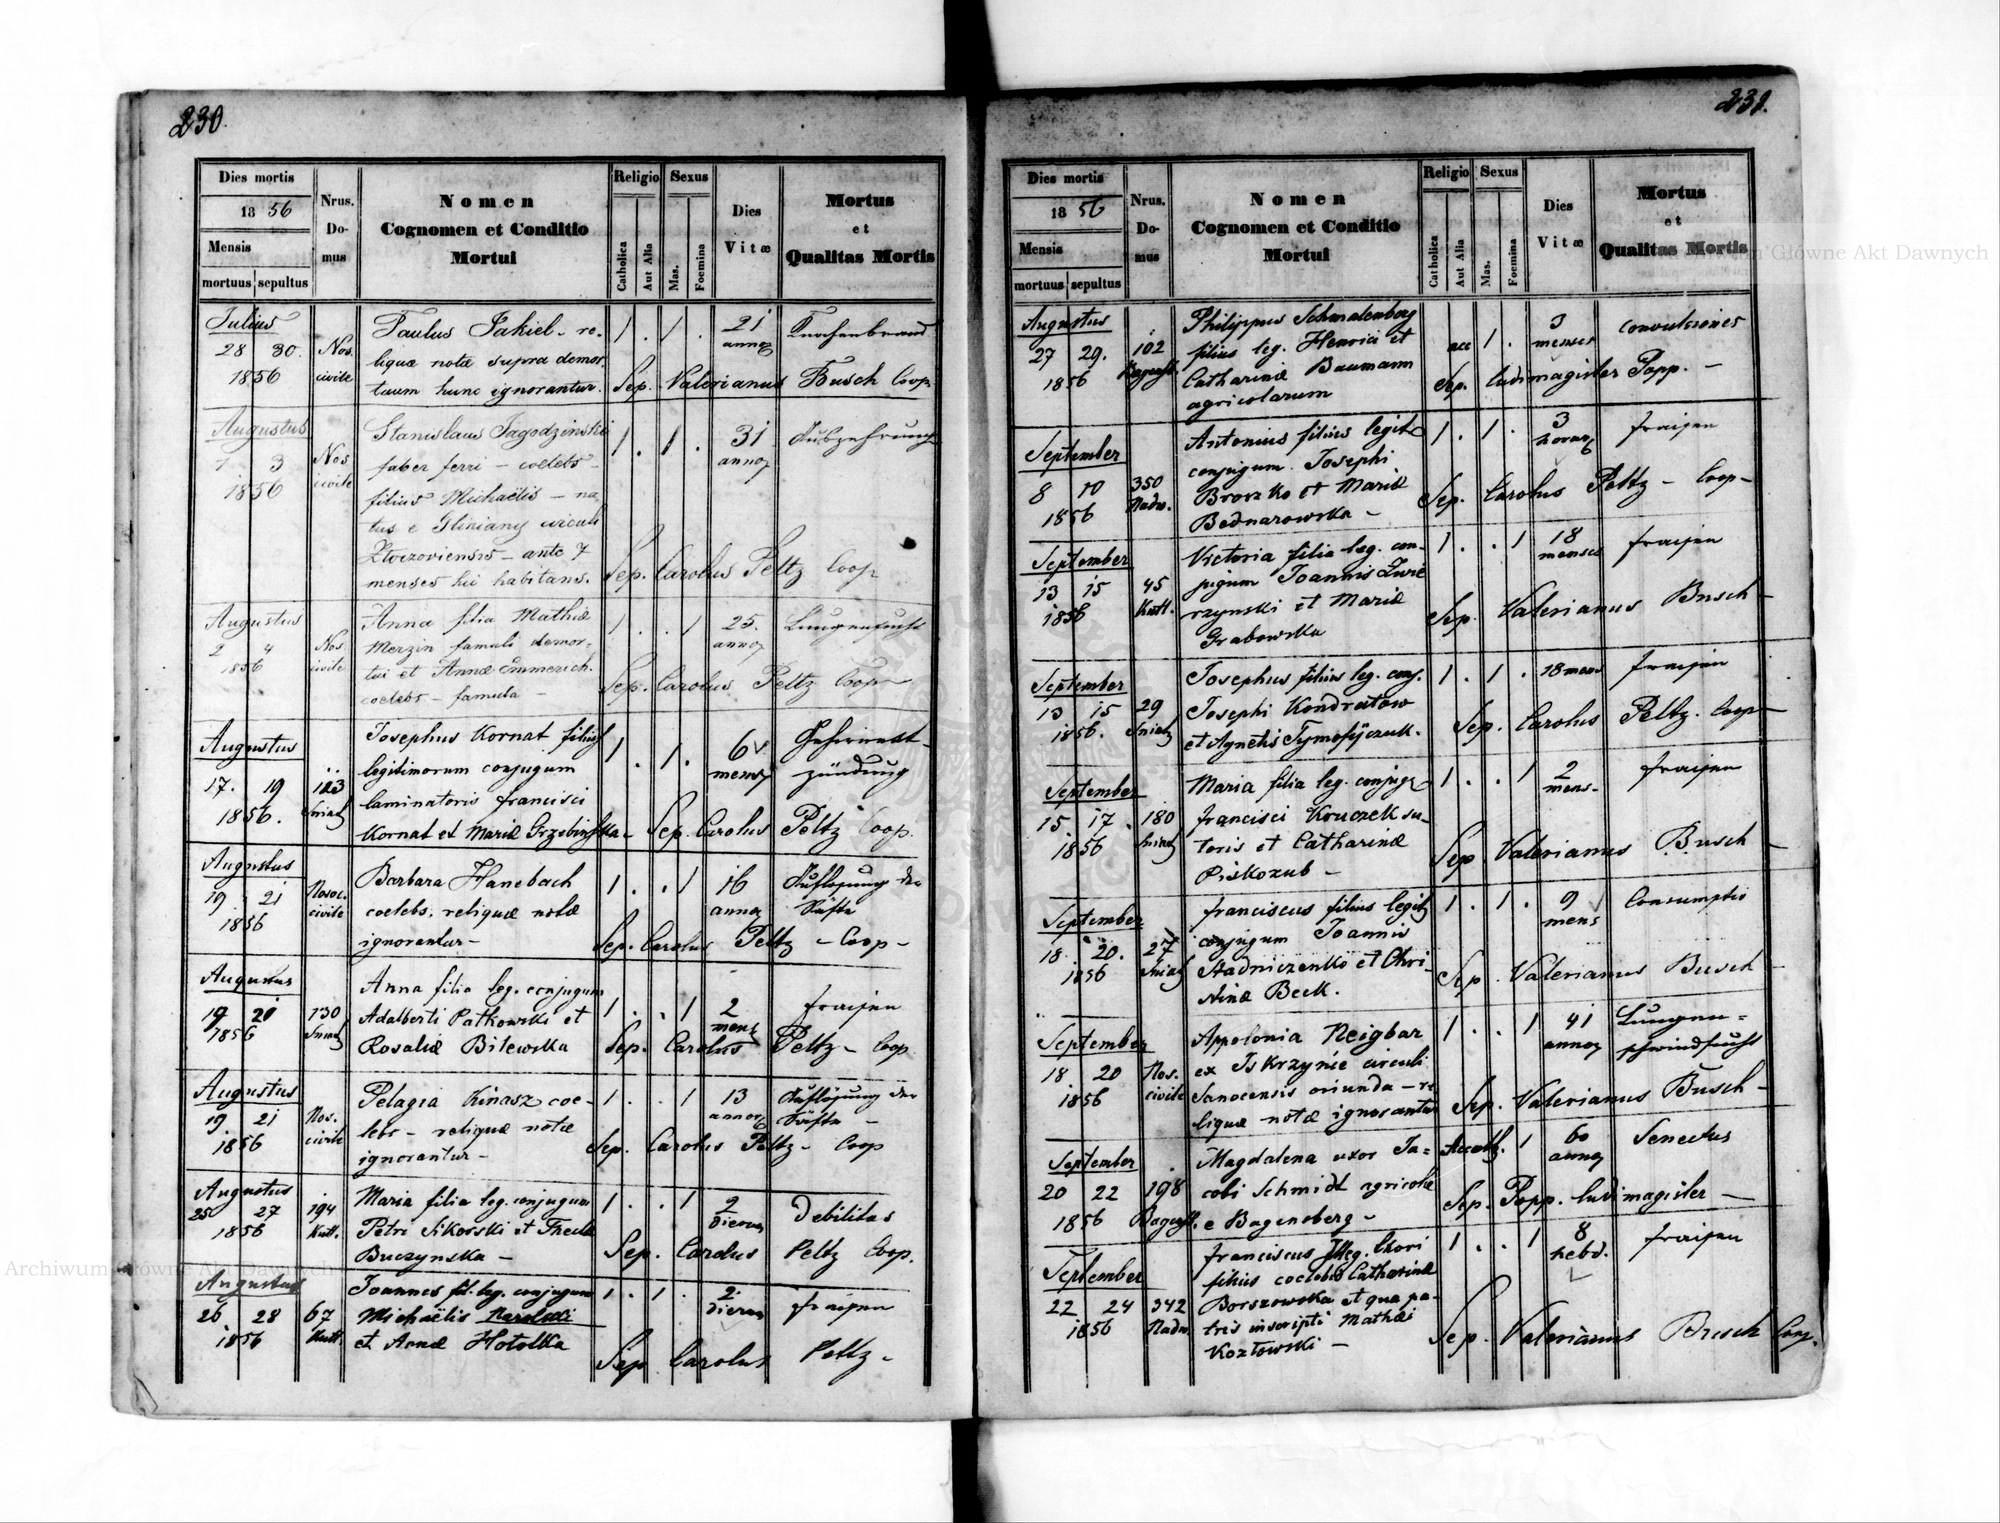 230.
Dies mortis
18 56
Mensis
mortuus sepultus
Nrus.
Do-
mus
Nomen
Cognomen et Conditio
Mortui
Religio
Catholica
Aut Alia
Sexus
Mas.
Foemina
Dies
Vitæ
Mortus
et
Qualitas Mortis
Julius
28 30.
1856
Nos.
civile
Paulus Jakiel - re-
liquæ notæ supra demor
tuum hunc ignorantur.
1 . 1 .
21
annor
Knochenbrand
Sep. Valerianus Busch Coop
Augustus
1 3
1856
Nos
civile
Stanislaus Jagodzinski
faber ferri - coelebs -
filius Michaëlis - na
tus e Gliniany circuli
Zloczoviensis - ante 7
menses hic habitans.
1 . 1 .
31
annor
Auszehrung
Sep. Carolus Peltz Coop
Augustus
2 4
1856
Nos
civile
Anna filia Mathiæ
Merzin famuli demor-
tui et Annæ Emmerich.
coelebs - famula -
1 . . 1
25.
annor
Lungensucht
Sep. Carolus Peltz Coop
Augustus
17. 19
1856.
123
Sniat
Josephus Kornat filius
legitimorum conjugum
laminatoris francisci
Kornat et Mariæ Grzebinska -
1 . 1 .
6
mens
zündung
Sep. Carolus Peltz Coop.
Augustus
19 . 21
1856
Nosoc.
civile
Barbara Hanebach
coelebs. reliquæ notæ
ignorantur -
1 . . 1
16
annor
Auflösung der
Säfte
Sep. Carolus Peltz - Coop -
Augustus
19 21
1856
730
Sniat
Anna filia leg. conjugum
Adalberti Patkowski et
Rosaliæ Bilewska
1 . . 1
2
mens
fraisen
Sep. Carolus Peltz - Coop
Augustus
19. 21
1856
Nos.
civile
Pelagia Kinasz coe-
lebs - reliquæ notæ
ignorantur -
1 . . 1
13
annor
Auflösung der
Säfte -
Sep. Carolus Peltz - Coop
Augustus
25 27
1856
194
Kutt.
Maria filia leg. conjugum
Petri Sikorski et Theclæ
Buczynska -
1 . . 1
2
dierum
Debilitas
Sep. Carolus Peltz Coop.
Augustus
26 28
1856
67
Kutt.
Joannes fil. leg. conjugum
Michaëlis
et Annæ Hotolka
1 . 1 .
2.
dierum
fraisen
Sep Carolus Peltz -
231.
Dies mortis
18 56
Mensis
mortuus sepultus
Nrus.
Do-
mus
Nomen
Cognomen et Conditio
Mortui
Religio
Catholica
Aut Alia
Sexus
Mas.
Foemina
Dies
Vitæ
Mortus
et
Qualitas Mortis
Augustus
27 29.
1856
102
Philippus Schmalenberg
filius leg. Henrici et
Catharinæ Baumann
agricolarum
acc 1 .
3
menses
convulsiones
Sep. ludimagister Popp. -
September
8 10
1856
350
Nadw.
Antonius filius legit
conjugum Josephi
Brorzko et Mariæ
Bednarowska -
1 . 1 .
3
horar
fraisen
Sep. Carolus Peltz - Coop -
September
13 15
1856
45
Kutt.
Victoria filia leg. con-
jugum Joannis Zure
rzynski et Mariæ
Grabowska
1 . . 1
18
menses
fraisen
Sep. Valerianus Busch -
September
13 15
1856.
29
Sniat
Josephus filius leg. conj.
Josephi Kondratow
et Agnetis Tymofijczuk.
1 . 1 .
18 mens
fraisen
Sep. Carolus Peltz. Coop -
September
15 17
1856
180
Sniat
Maria filia leg. conjug
francisci Kruczek su-
toris et Catharinæ
Piskozub -
1 . . 1
2
mens.
fraisen
Sep Valerianus Busch -
September
18 20.
1856
27
Sniat
franciscus filius legit
conjugum Joannis
Stadniczenko et Chri-
stinæ Beck.
1 . 1 .
9
mens
Consumptio
Sep. Valerianus Busch
September
18 20
1856
Nos.
civile
Appolonia Neigbar
ex Iskrzynie circuli
Sanocensis oriunda - re
liquæ notæ ignorantur
1 . . 1
41
annor
Lungen=
schwindsucht
Sep. Valerianus Busch -
September
20 22
1856
198
Bagusb.
Magdalena uxor Ja=
cobi Schmidt agricolæ
e Bagensberg -
Accath. 1
60
annor
Senectus
Sep. Popp. ludimagister -
September
22 24
1856
342
Nadw
franciscus Illeg. thori
filius coelebis Catharinæ
Borszowska et qua pa-
tris inscripti Mathæi
Kozłowski -
1 . . 1
8
hebd.
fraisen
Sep. Valerianus Busch Coop.
Archiwum Główne Akt Dawnych